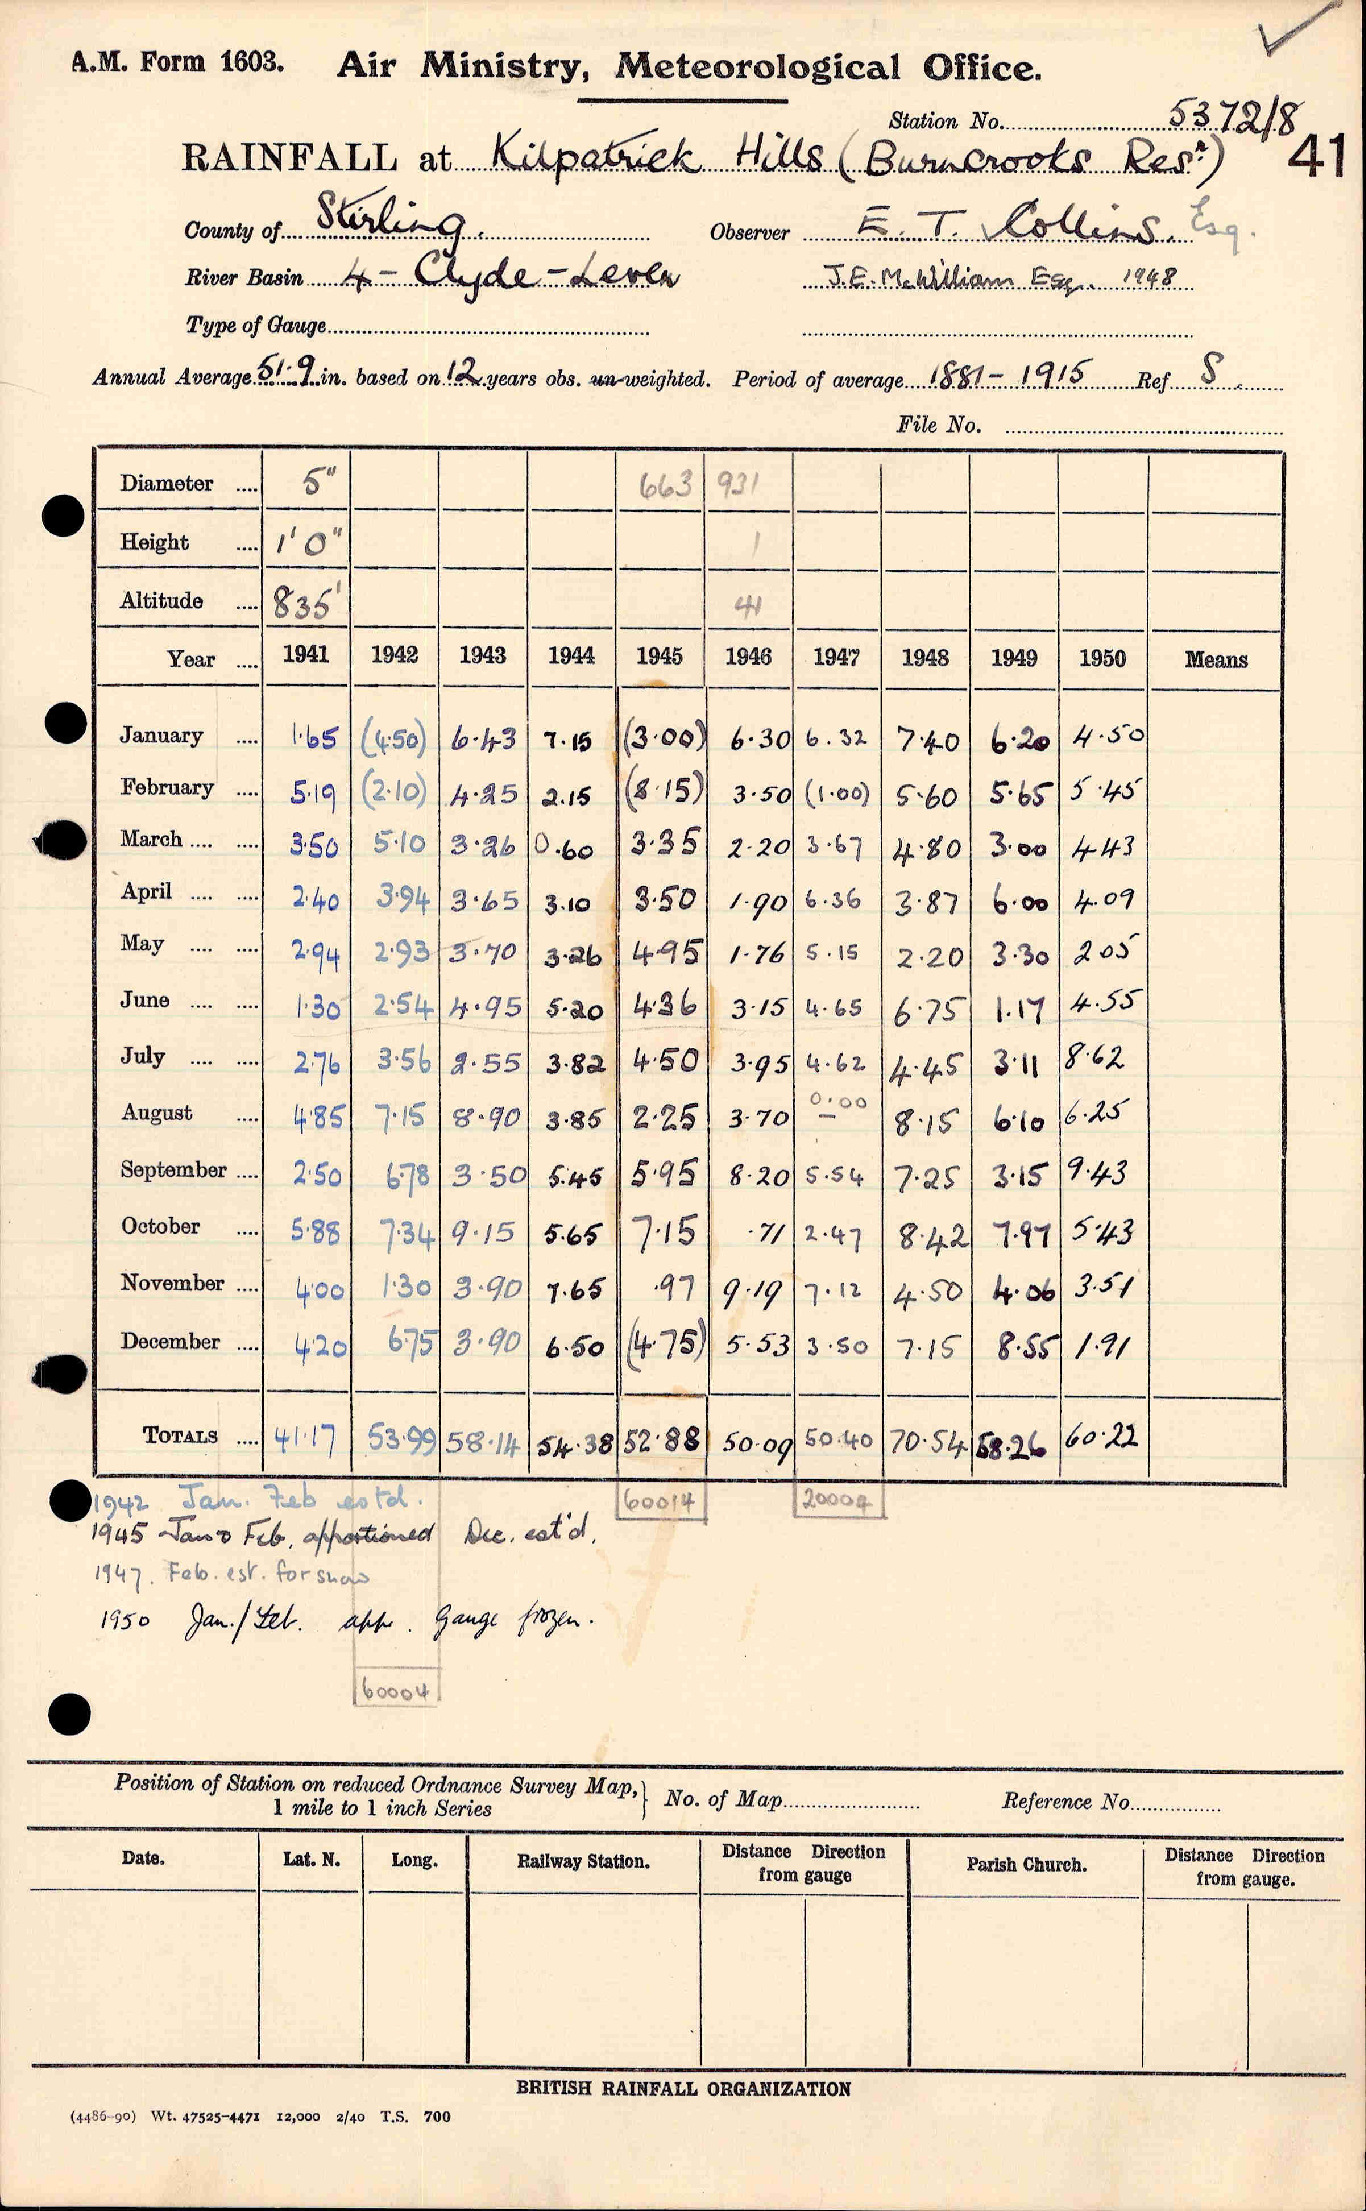 A.M. Form 1603. Air Ministry, Meteorological Office.
Station No. 5372/8
RAINFALL at Kilpatrick Hills (Burncrooks Resr.) 41
County of Stirling. Observer E. T. Collins. Esq.
River Basin 4 - Clyde - Leven J.E. McWilliam Esq. 1948
Type of Gauge
Annual Average 51.9 in. based on 12 years obs. un-weighted. Period of average 1881-1915 Ref S.
File No.
Diameter .... 5" 663 931
Height .... 1' 0" 1
Altitude .... 835' 41
Year .... 1941 1942 1943 1944 1945 1946 1947 1948 1949 1950 Means
January .... 1.65 (4.50) 6.43 7.15 (3.00) 6.30 6.32 7.40 6.20 4.50
February .... 5.19 (2.10) 4.25 2.15 (8.15) 3.50 (1.00) 5.60 5.65 5.45
March .... .... 3.50 5.10 3.26 0.60 3.35 2.20 3.67 4.80 3.00 4.43
April .... .... 2.40 3.94 3.65 3.10 3.50 1.90 6.36 3.87 6.00 4.09
May .... .... 2.94 2.93 3.70 3.26 4.95 1.76 5.15 2.20 3.30 2.05
June .... .... 1.30 2.54 4.95 5.20 4.36 3.15 4.65 6.75 1.17 4.55
July .... .... 2.76 3.56 2.55 3.82 4.50 3.95 4.62 4.45 3.11 8.62
August .... 4.85 7.15 8.90 3.85 2.25 3.70 0.00 – 8.15 6.10 6.25
September .... 2.50 6.78 3.50 5.45 5.95 8.20 5.54 7.25 3.15 9.43
October .... 5.88 7.34 9.15 5.65 7.15 .71 2.47 8.42 7.97 5.43
November .... 4.00 1.30 3.90 7.65 .97 9.19 7.12 4.50 4.06 3.51
December .... 4.20 6.75 3.90 6.50 (4.75) 5.53 3.50 7.15 8.55 1.91
TOTALS .... 41.17 53.99 58.14 54.38 52.88 50.09 50.40 70.54 58.26 60.22
1942 Jan. Feb estd. 60014 20004
1945 Jan & Feb. apportioned Dec. est'd.
1947. Feb. est. for snow
1950 Jan./Feb. app. Gauge frozen.
60004
Position of Station on reduced Ordnance Survey Map, 1 mile to 1 inch Series } No. of Map Reference No.
Date. Lat. N. Long. Railway Station. Distance Direction from gauge Parish Church. Distance Direction from gauge.
BRITISH RAINFALL ORGANIZATION
(4486-90) Wt. 47525-4471 12,000 2/40 T.S. 700